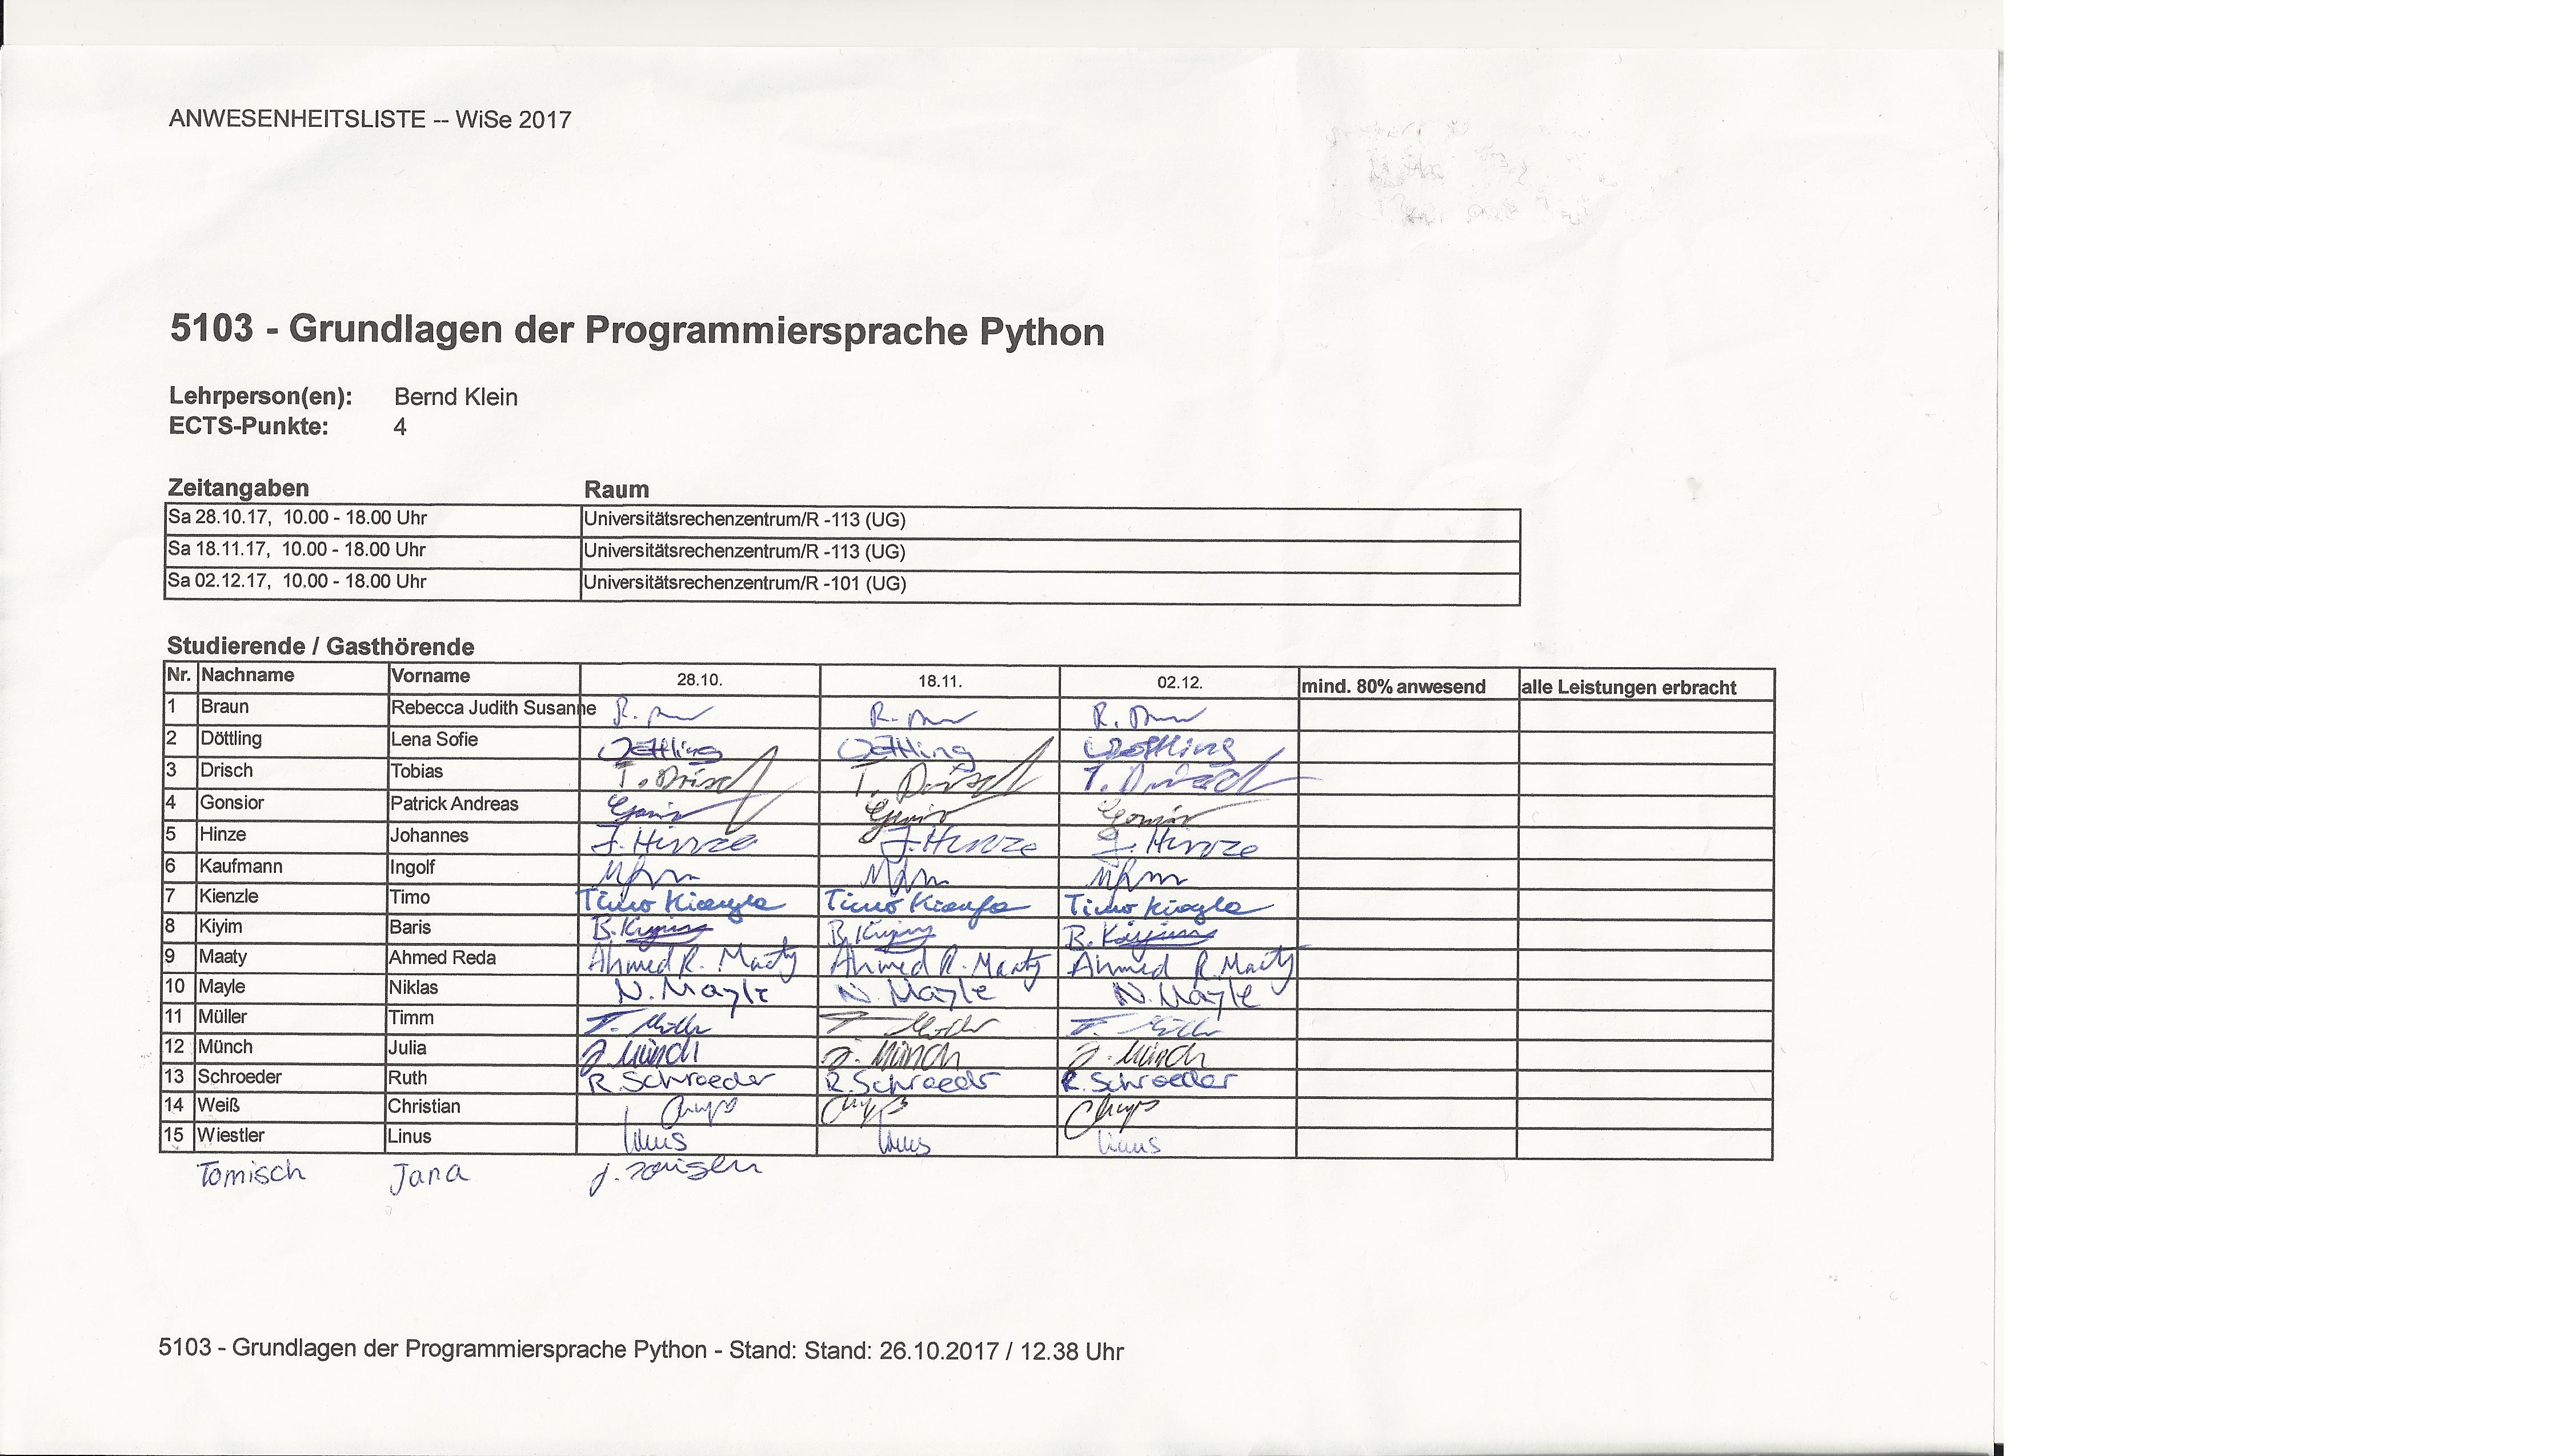 ANWESENHEITSLISTE -- WiSe 2017
5103 - Grundlagen der Programmiersprache Python
Lehrperson(en): Bernd Klein
ECTS-Punkte: 4
Zeitangaben Raum
Sa 28.10.17, 10.00 - 18.00 Uhr Universitätsrechenzentrum/R -113 (UG)
Sa 18.11.17, 10.00 - 18.00 Uhr Universitätsrechenzentrum/R -113 (UG)
Sa 02.12.17, 10.00 - 18.00 Uhr Universitätsrechenzentrum/R -101 (UG)
Studierende / Gasthörende
Nr. Nachname Vorname 28.10. 18.11. 02.12. mind. 80% anwesend alle Leistungen erbracht
1 Braun Rebecca Judith Susanne R. R. R.
2 Döttling Lena Sofie
3 Drisch Tobias T. Drisch T. Drisch T. Drisch
4 Gonsior Patrick Andreas
5 Hinze Johannes J. Hinze J. Hinze J. Hinze
6 Kaufmann Ingolf
7 Kienzle Timo Timo Kienzle Timo Kienzle Timo Kienzle
8 Kiyim Baris B. Kiyim B. Kiyim B. Kiyim
9 Maaty Ahmed Reda Ahmed R. Maaty Ahmed R. Maaty Ahmed R. Maaty
10 Mayle Niklas N. Mayle N. Mayle N. Mayle
11 Müller Timm T. Müller T. Müller T. Müller
12 Münch Julia J. Münch J. Münch J. Münch
13 Schroeder Ruth R. Schroeder R. Schroeder R. Schroeder
14 Weiß Christian
15 Wiestler Linus Linus Linus Linus
Tomisch Jana J.
5103 - Grundlagen der Programmiersprache Python - Stand: Stand: 26.10.2017 / 12.38 Uhr